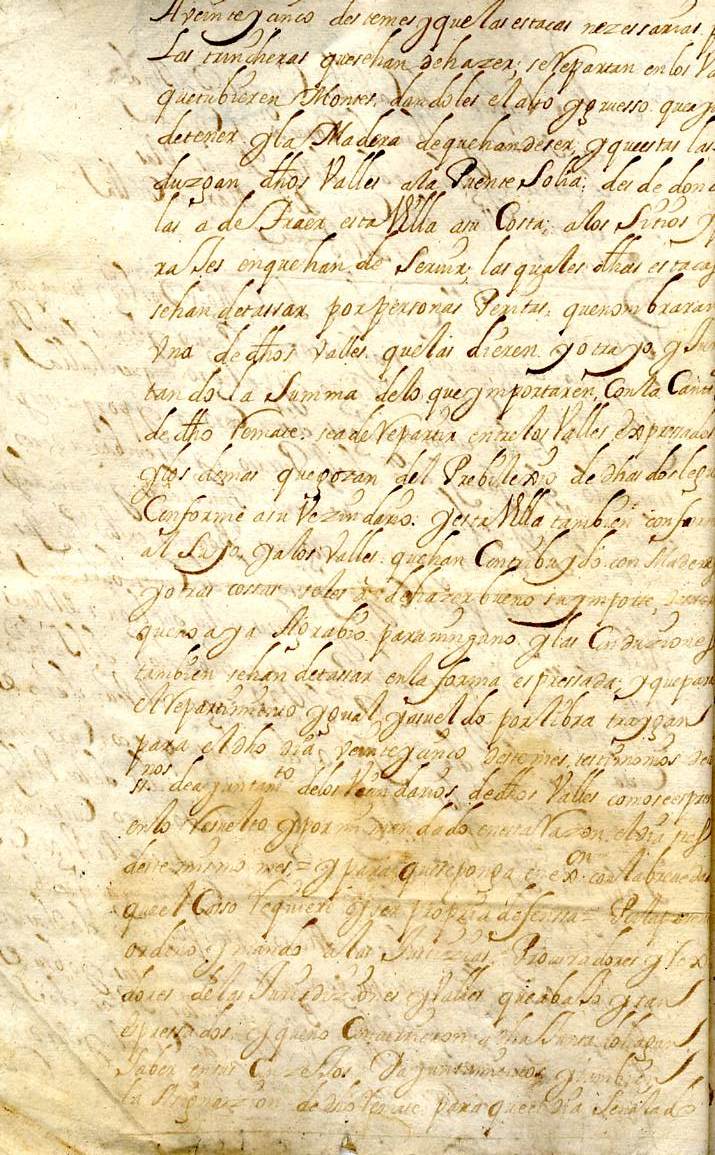 A veinte y cinco deste mes y que las estacas nezessarias p
Las trincheras que se han de hazer, se Repartan en los Va
que tubieren Montes, dandoles el alto y gruesso que
de tener y la Madera de que han de ser, y que estas las
duzgan dhos Valles a la Puente Solia; desde don
las a de Traer esta Villa a su Costa; a los Sitios y
raJes en que han de Seruir; las quales dhas estacas
se han de tassar por personas Peritas, que nombraran
Vna de dhos Valles que las dieren y otra yo, y Jun
tando la Summa de lo que ymportaren, Con la Canti
de dho Remate, se a de Repartir entre los Valles expresados
y los demas que gozan del Prebilexio de dhas dos leg
Conforme a su Vezindario, y esta Villa tambien conform
al Suyo, y a los Valles que han Contribuydo con Madera
y otras costas se les a de hazer bueno su ymporte,
que no aya Agrabio para ninguno, y las Conduziones
tambien se han de tassar en la forma espressada; y que para
el Repartimiento ygual, y a sueldo por libra traygan
para el dho dia veinte y cinco deste mes, testimonios de
ss.nos de ayuntam.to de los Vezindarios de dhos Valles como se espre
en lo Resuelto, y por mi mandado en esta Razon el dia
deste mismo mes = y para que se ponga en ex.on con la breueda
que el Caso Requiere y ser propria defensa =
ordeno y mando a las Justizias, Procuradores y
dores de las Jurisdiziones y Valles que abajo yran
espressados, y que no Concurrieron a dha Junta lo hagan
Saber en sus Conzejos, y Ayuntamientos y tambien
la Asignazion de dho Remate para que el dia Señalado